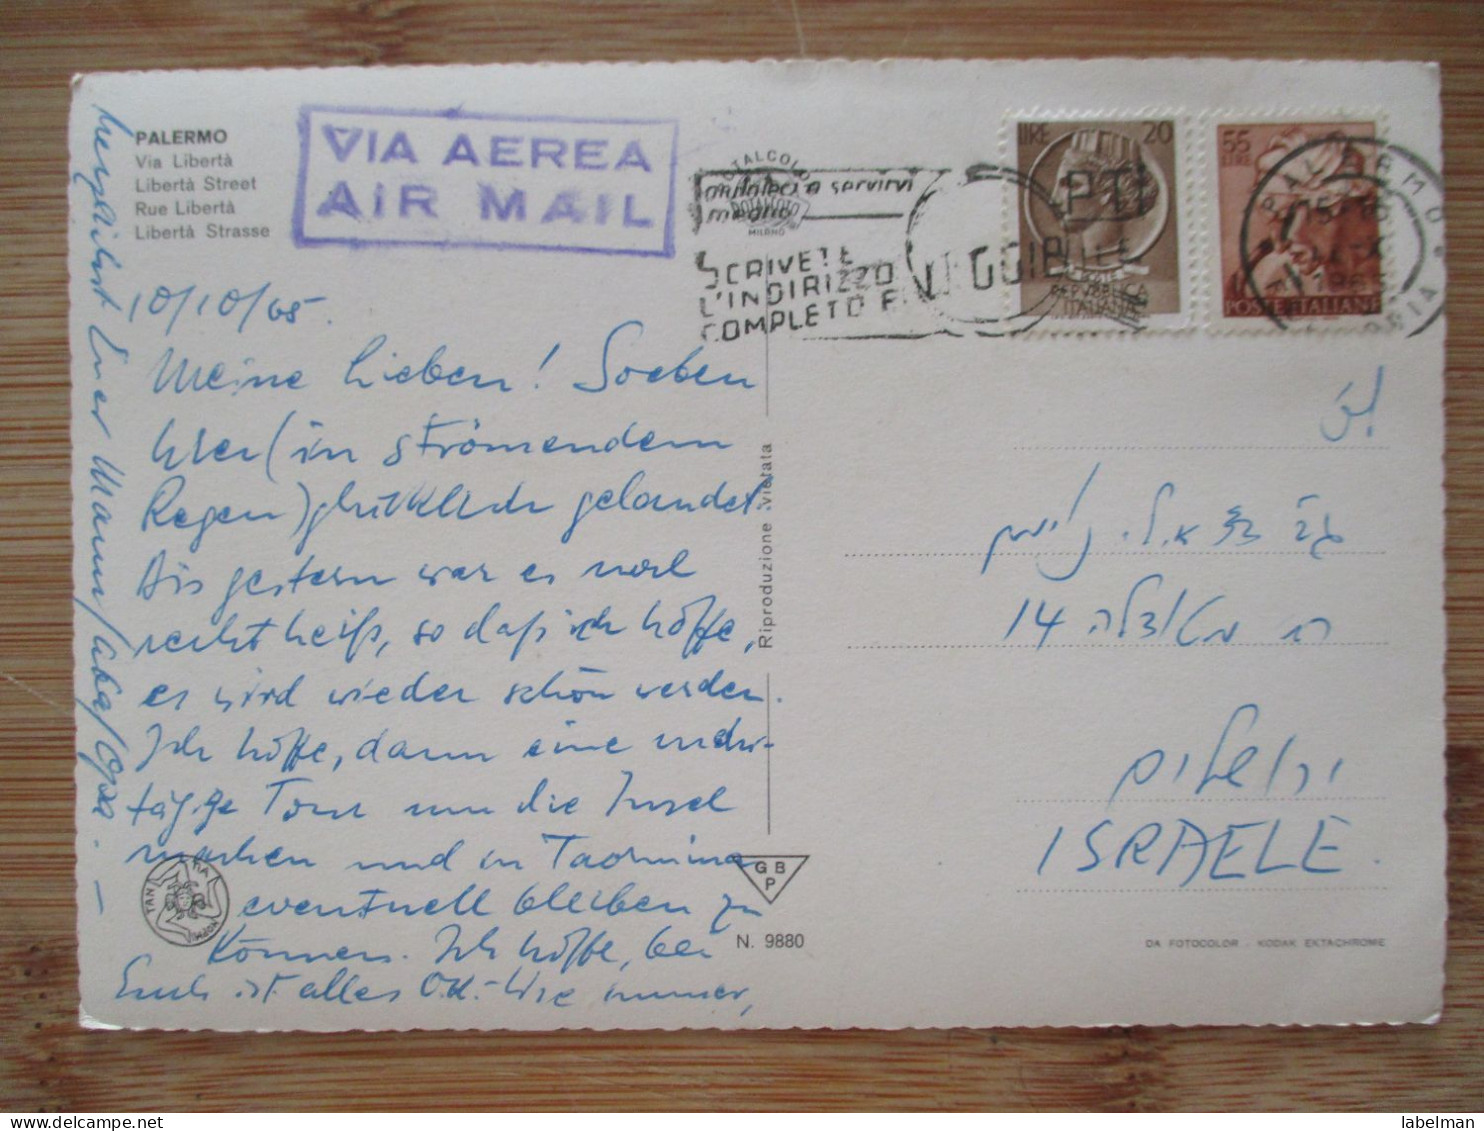 PALERMO
Via Libertà
Libertà Street
Rue Libertà
Libertà Strasse
VIA AEREA
AIR MAIL
10/10/65.
Meine Lieben! Soeben
hier (in strömendem
Regen) glücklich gelandet.
Bis gestern war es noch
recht heiß, so daß ich hoffe,
es wird wieder schön werden.
Ich hoffe, dann eine mehr-
tägige Tour um die Insel
machen und in Taormina
eventuell bleiben zu
können. Ich hoffe, bei
Euch ist alles O.K. - Wie immer,
herzlichst Euer Mann/Aba/Opa. -
Riproduzione vietata
G B P
N. 9880
TOTALCOLOR
MILANO
aiutateci a servirvi
meglio
SCRIVETE
L'INDIRIZZO
COMPLETO E LEGGIBILE
PTT
LIRE 20
REPUBBLICA
ITALIANA
55
LIRE
POSTE ITALIANE
PALERMO
14
ירושלים
ISRAELE.
DA FOTOCOLOR - KODAK EKTACHROME
labelman